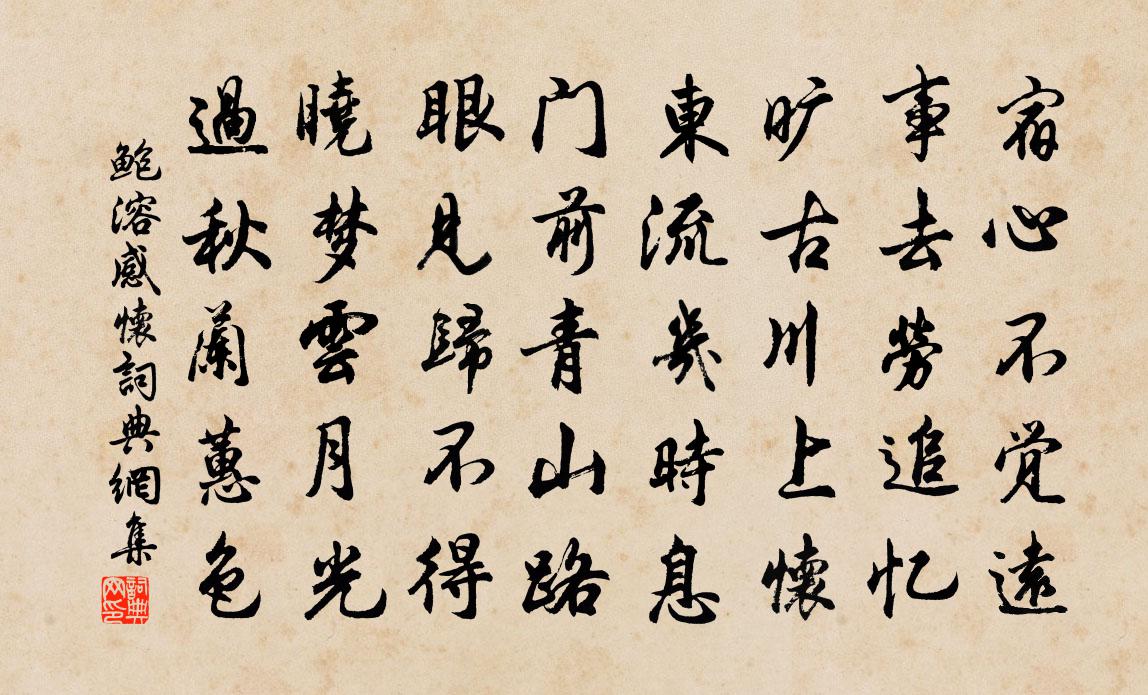 宿心不觉遠
事去勞追忆
旷古川上懷
東流幾時息
门前青山路
眼見歸不得
曉梦雲月光
過秋蘭蕙色
鲍溶感懷詞典網集
詞典网印